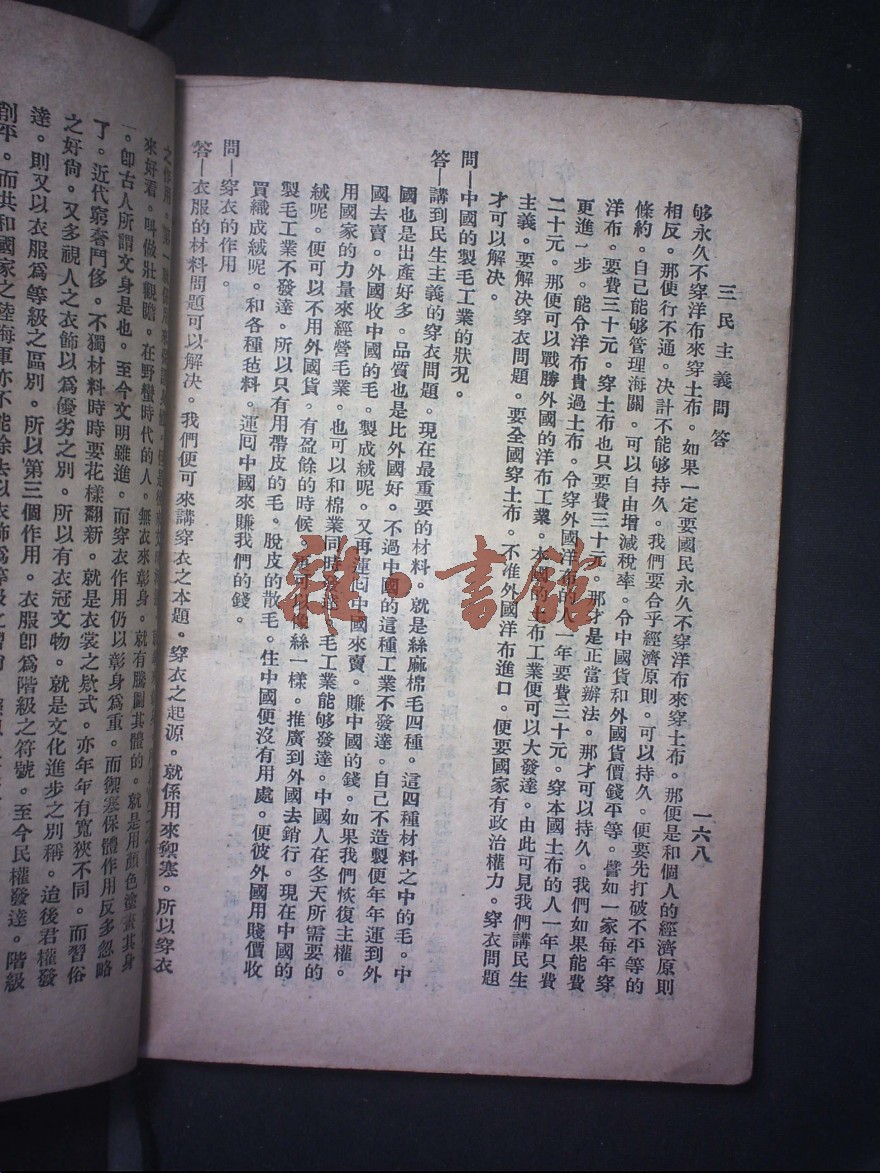 三民主義問答
一六八
够永久不穿洋布來穿土布。如果一定要國民永久不穿洋布來穿土布。那便是和個人的經濟原則
相反。那便行不通。决計不能够持久。我們要合乎經濟原則。可以持久。便要先打破不平等的
條約。自己能够管理海關。可以自由增減稅率。令中國貨和外國貨價錢平等。譬如一家每年穿
洋布。要費三十元。穿土布也只要費三十元。那才是正當辦法。那才可以持久。我們如果能費
更進一步。能令洋布貴過土布。令穿外國洋布的人一年要費三十元。穿本國土布的人一年只費
二十元。那便可以戰勝外國的洋布工業。本國的土布工業便可以大發達。由此可見我們講民生
主義。要解决穿衣問題。要全國穿土布。不准外國洋布進口。便要國家有政治權力。穿衣問題
才可以解决。
問—中國的製毛工業的狀况。
答—講到民生主義的穿衣問題。現在最重要的材料。就是絲麻棉毛四種。這四種材料之中的毛。中
國也是出產好多。品質也是比外國好。不過中國的這種工業不發達。自己不造製便年年運到外
國去賣。外國收中國的毛。製成絨呢。又再運囘中國來賣。賺中國的錢。如果我們恢復主權。
用國家的力量來經營毛業。也可以和棉業同時發達。毛工業能够發達。中國人在冬天所需要的
絨呢。便可以不用外國貨。有盈餘的時候。更可以像絲一樣。推廣到外國去銷行。現在中國的
製毛工業不發達。所以只有用帶皮的毛。脫皮的散毛。住中國便沒有用處。便彼外國用賤價收
買織成絨呢。和各種毡料。運囘中國來賺我們的錢。
問—穿衣的作用。
答—衣服的材料問題可以解决。我們便可來講穿衣之本題。穿衣之起源。就係用來禦寒。所以穿衣
之作用。第一
來好看。叫做壯觀瞻。在野蠻時代的人。無衣來彰身。就有騰圖其體的。就是用顏色塗畫其身
。卽古人所謂文身是也。至今文明雖進。而穿衣作用仍以彰身爲重。而禦寒保體作用反多忽略
了。近代窮奢鬥侈。不獨材料時時要花樣翻新。就是衣裳之欵式。亦年年有寬狹不同。而習俗
之好尙。又多視人之衣飾以爲優劣之別。所以有衣冠文物。就是文化進步之別稱。迨後君權發
達。則又以衣服爲等級之區別。所以第三個作用。衣服卽爲階級之符號。至今民權發達。階級
削平。而共和國家之陸海軍亦不能除去以衣飾爲等級之習
雜·書館